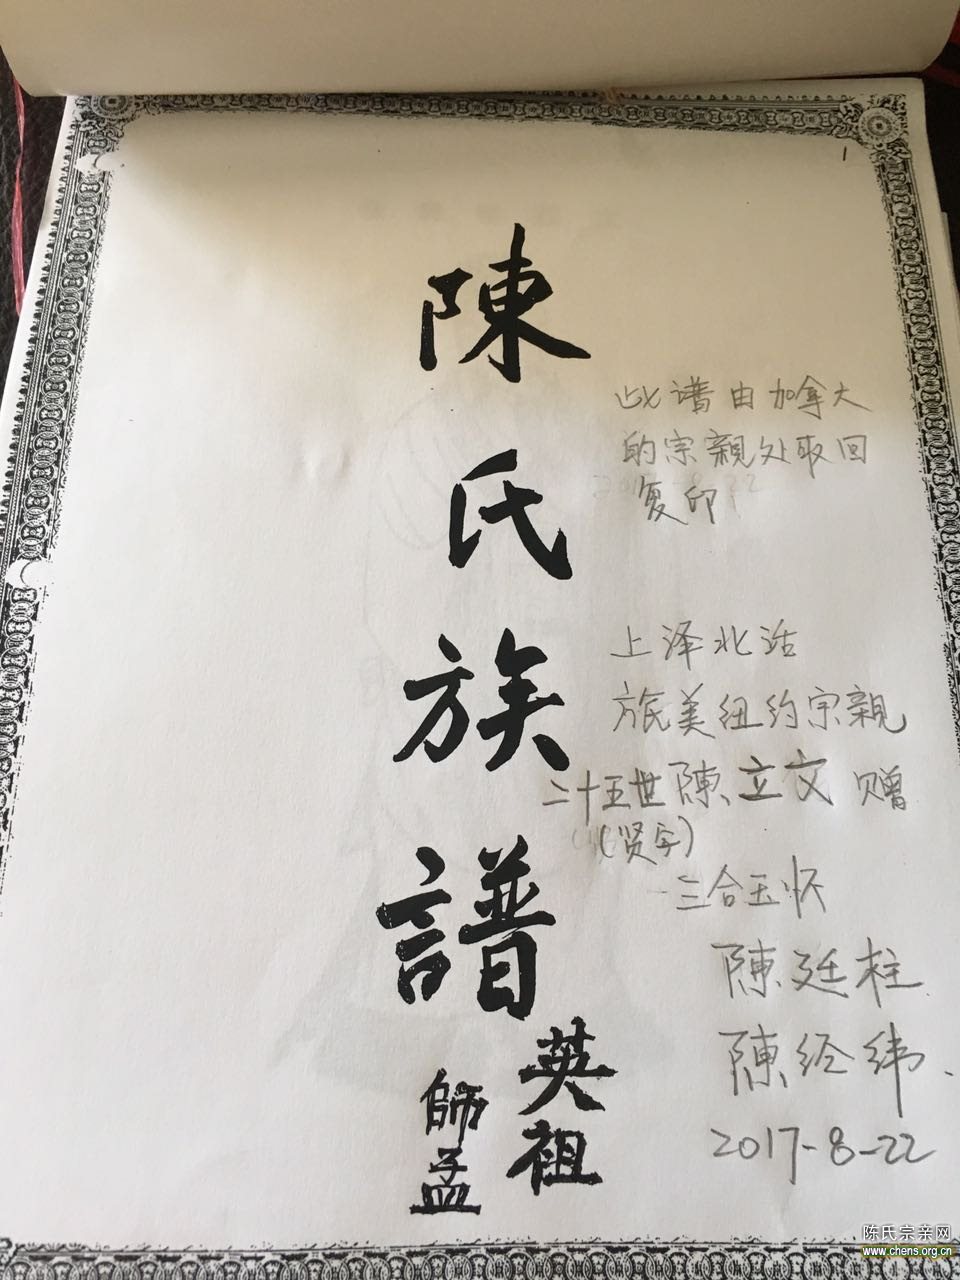 1
陳氏族譜
英祖
師孟
此谱由加拿大
的宗親处取回
复印
上泽北活
旅美纽约宗親
二十五世陳立文赠
(贤字)
三合玉怀
陳廷柱
陳经纬.
2017-8-22
陈氏宗亲网
www.chens.org.cn